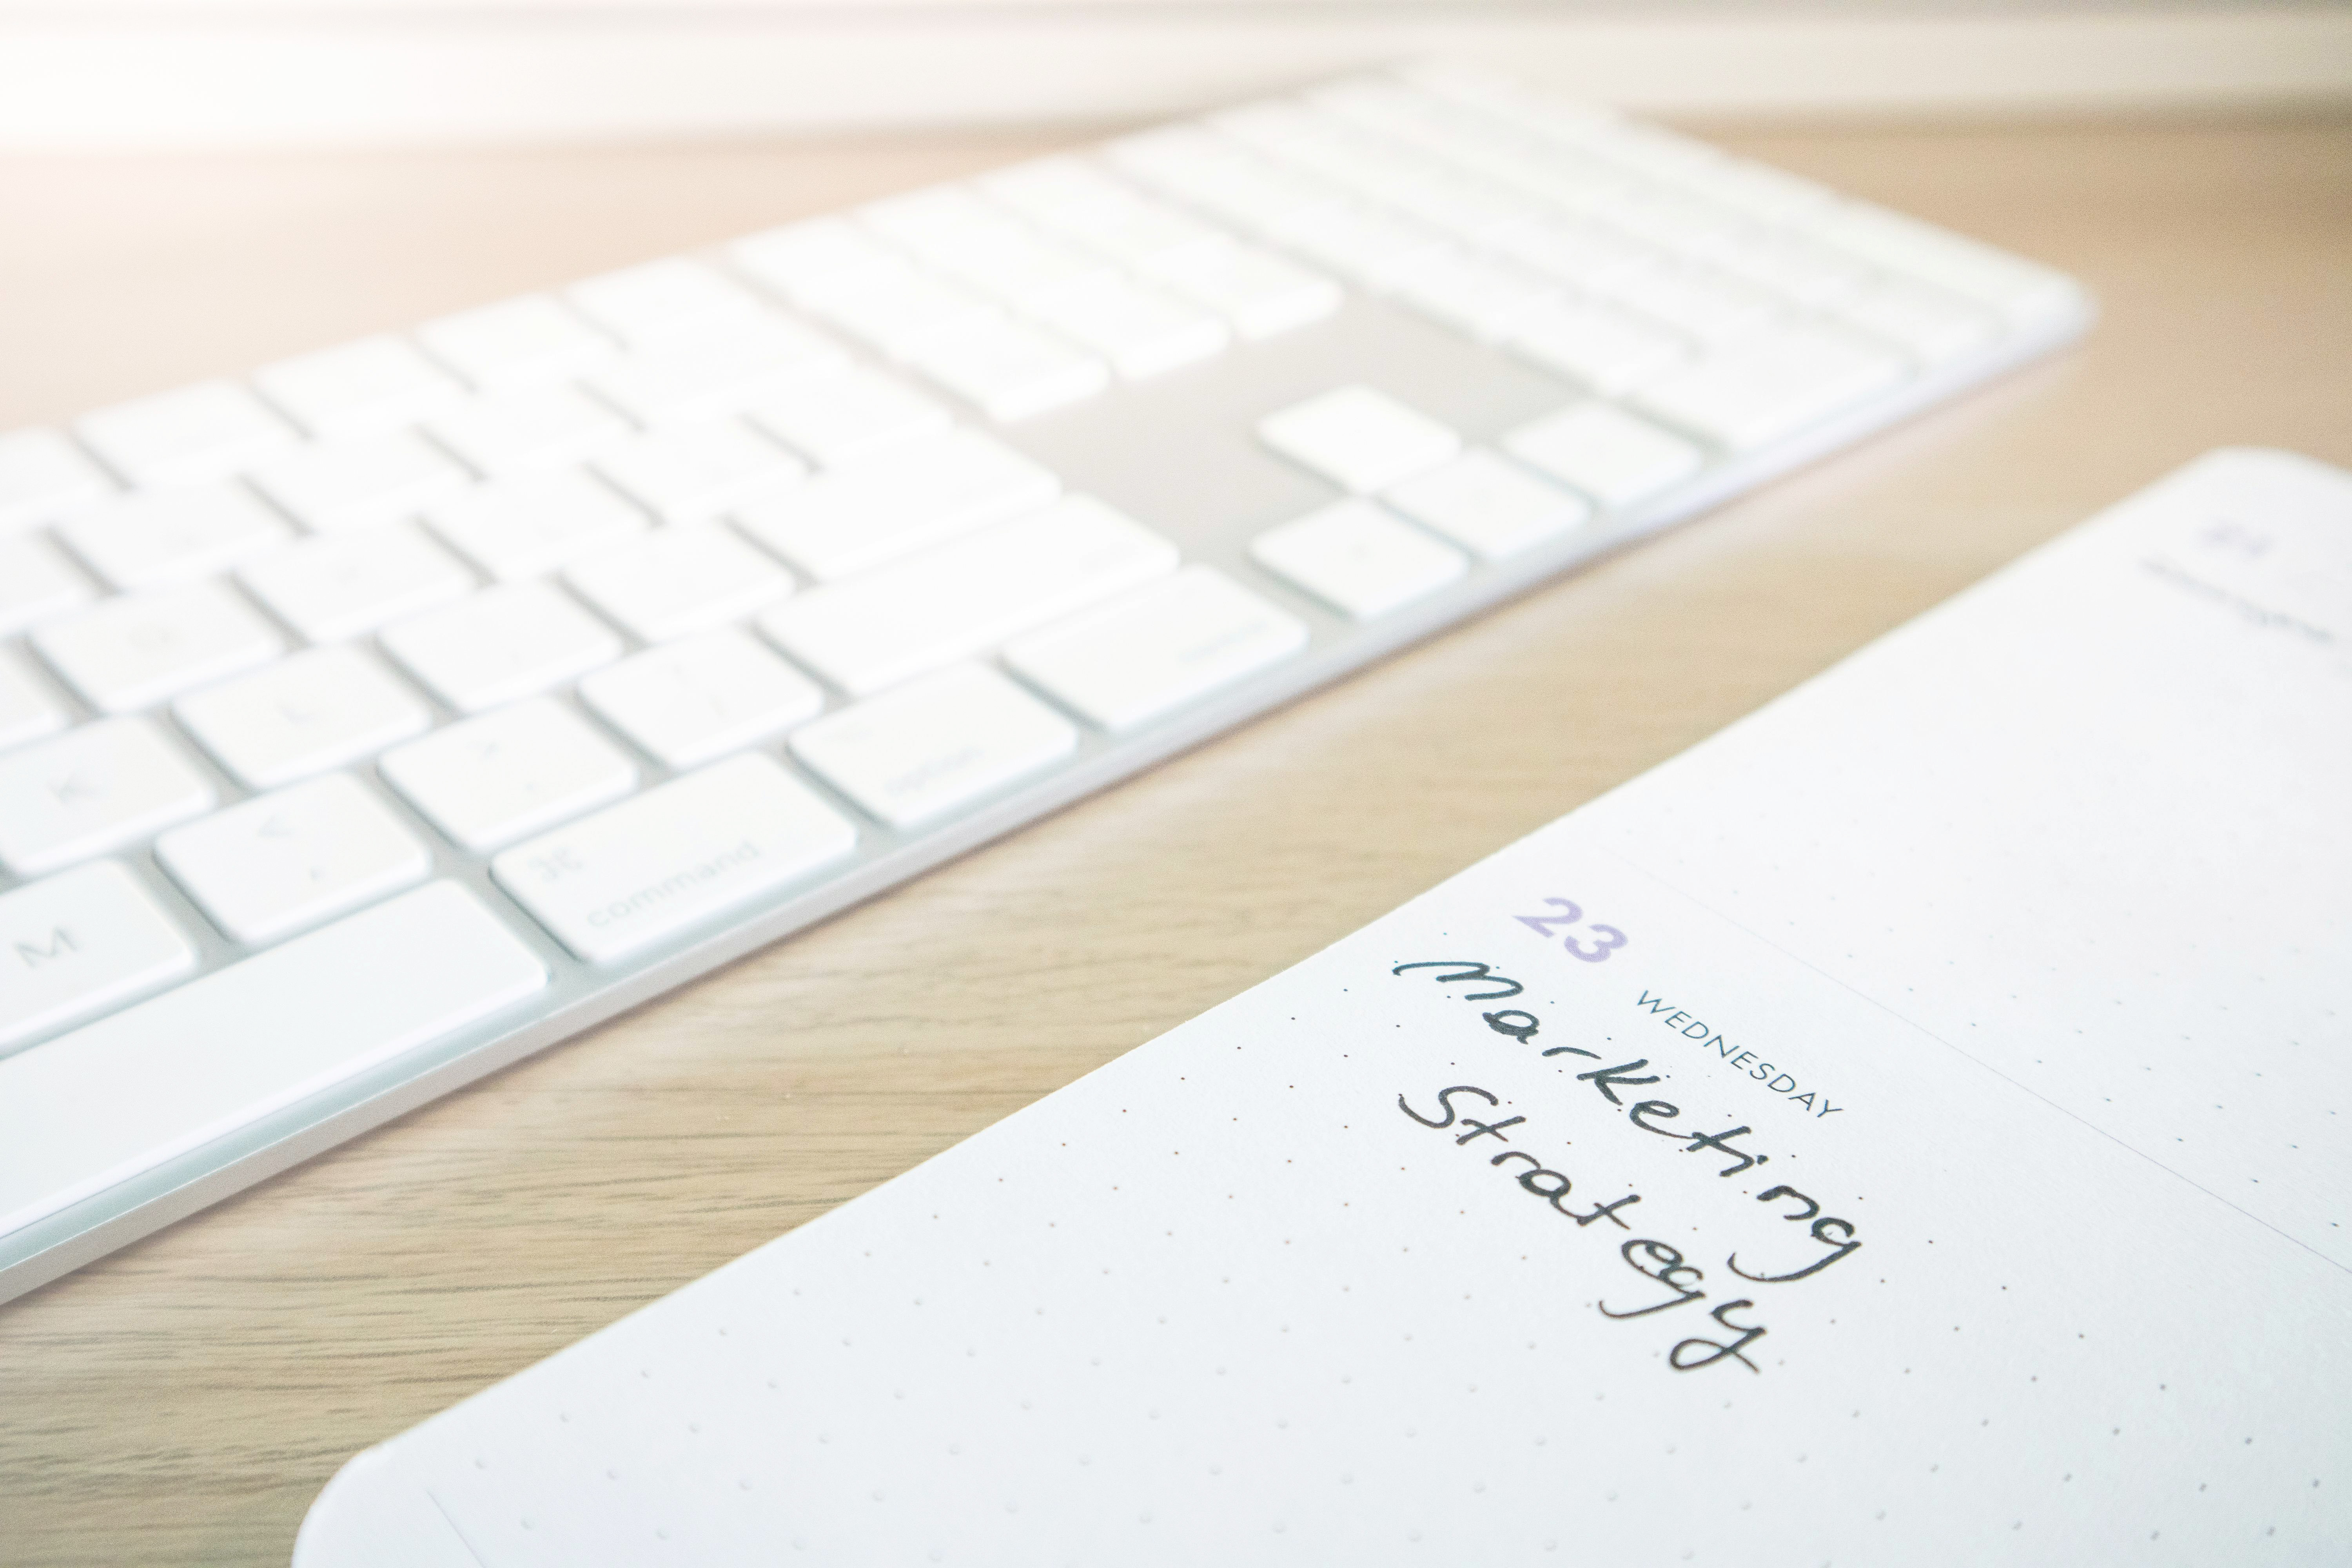 K
L
M
<
,
>
.
⌘
command
option
23
WEDNESDAY
Marketing
Strategy